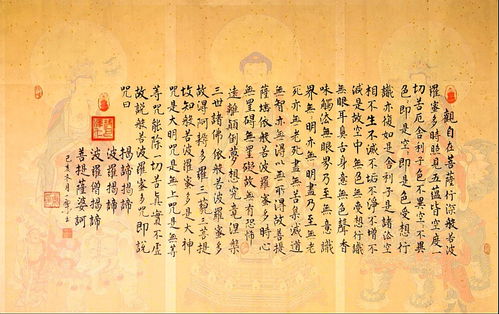 觀自在菩薩行深般若波
羅蜜多時照見五蘊皆空度一
切苦厄舍利子色不異空々不異
色々即是空々即是色受想行
識亦復如是舍利子是諸法空
相不生不滅不垢不淨不增不
減是故空中無色無受想行識
無眼耳鼻舌身意無色聲香
味觸法無眼界乃至無意識
界無々明亦無々明盡乃至無老
死亦無老死盡無苦集滅道
無智亦無得以無所得故菩提
薩埵依般若波羅蜜多時心
無罣礙無罣礙故無有恐怖
遠離顛倒夢想究竟涅槃
三世諸佛依般若波羅蜜多
故得阿耨多羅三藐三菩提
故知般若波羅蜜多是大神
咒是大明咒是無上咒是無等
等咒能除一切苦真實不虛
故說般若波羅蜜多咒即說
咒曰
揭諦揭諦
波羅揭諦
波羅僧揭諦
菩提薩婆訶